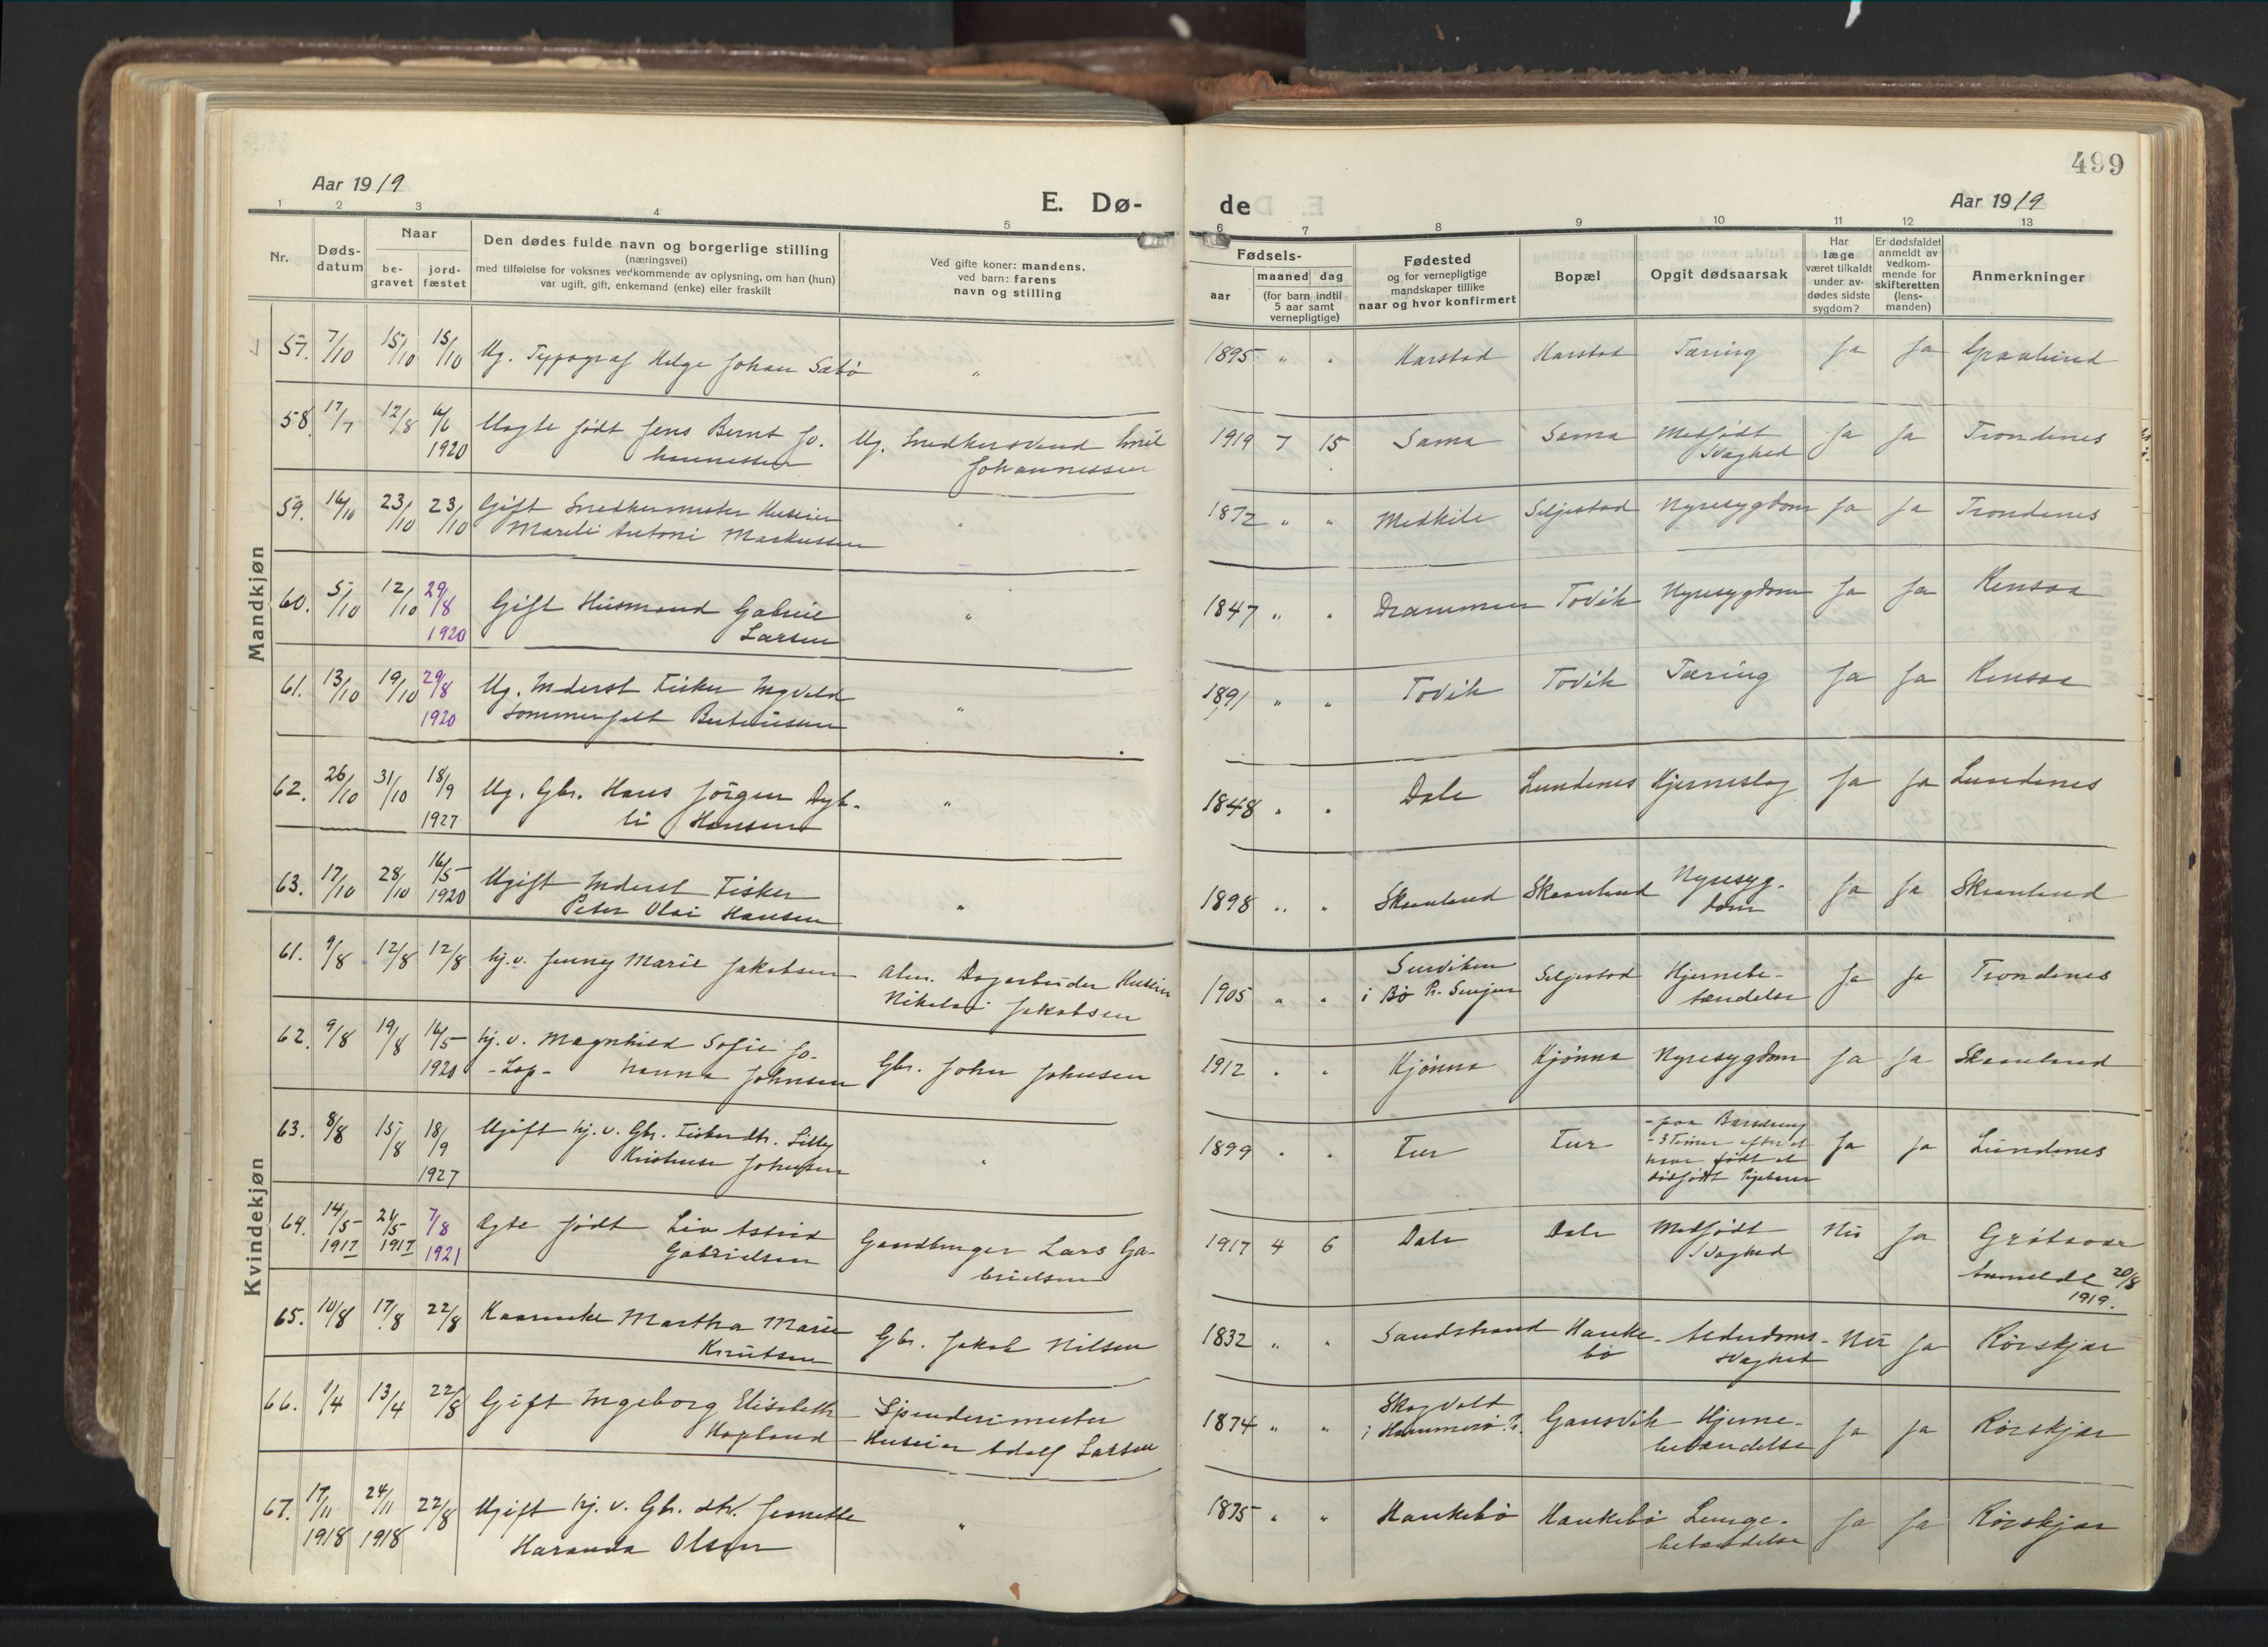 499
Aar 1919
E. Dø-
de
Aar 1919
1 2 3 4 5 6 7 8 9 10 11 12 13
Nr.
Døds-
datum
Naar
be-
gravet
jord-
fæstet
Den dødes fulde navn og borgerlige stilling
(næringsvei)
med tilføielse for voksnes vedkommende av oplysning, om han (hun)
var ugift, gift, enkemand (enke) eller fraskilt
Ved gifte koner: mandens,
ved barn: farens
navn og stilling
Fødsels-
aar
maaned dag
(for barn indtil
5 aar samt
vernepligtige)
Fødested
og for vernepligtige
mandskaper tillike
naar og hvor konfirmert
Bopæl
Opgit dødsaarsak
Har
læge
været tilkaldt
under av-
dødes sidste
sygdom?
Er dødsfaldet
anmeldt av
vedkom-
mende for
skifteretten
(lens-
manden)
Anmerkninger
Mandkjøn
57. 7/10 15/10 15/10 Ug. Typograf Helge Johan Sæbø " 1895 " " Harstad Harstad Tæring Ja Ja
58. 17/7 12/8 6/6 Uægte født Jens Bernt Jo- Ug. Snedkersvend Emil 1919 7 15 Sama Sama Medfødt Ja Ja Trondenes
1920 hannessen Johannessen svaghed
59. 16/10 23/10 23/10 Gift Snedkermester Huseier " 1872 " " Medkile Seljestad Nyresygdom Ja Ja Trondenes
Antoni Markussen
60. 5/10 12/10 29/8 Gift Husmand Gabriel " 1847 " " Drammen Tovik Nyresygdom Ja Ja Rensaa
1920 Larsen
61. 13/10 19/10 29/8 Ug. Inderst Fisker Ingvald " 1891 " " Tovik Tovik Tæring Ja Ja Rensaa
1920 Sommerfelt
62. 26/10 31/10 18/9 Ug. Gbr. Hans Jørgen Dyb- " 1848 " " Dale Lundenes Hjerneslag Ja Ja Lundenes
1927 li Hansen
63. 17/10 28/10 16/5 Ugift Inderst Fisker " 1898 " " Skaanland Skaanland Nyresyg- Ja Ja Skaanland
1920 Peter Olai Hansen dom
Kvindekjøn
61. 9/8 12/8 12/8 hj.v. Jenny Marie Jakobsen Alm. Dagarbeider Huseier 1905 " " i Bø Pr. Senjen Seljestad Hjernebe- Ja Ja Trondenes
Nikolai Jakobsen tændelse
62. 9/8 19/8 16/5 hj.v. Magnhild Sofie Jo- Gbr. John Johnsen 1912 " " Kjønna Kjønna Nyresygdom Ja Ja Skaanland
1920 - Lap - hanna Johnsen
63. 8/8 15/8 18/9 Ugift hj.v. Gbr. Fiskerdtr. Lilly " 1899 " " Fur Fur - paa Barselseng Ja Ja Lundenes
1927 Kristense Johnsen - 3 Timer efter at
have født et
dødfødt Pigebarn
64. 14/5 21/5 7/8 Ægte født Liv Astrid Gaardbruger Lars Ga- 1917 4 6 Dale Dale Medfødt Nei Ja Grøtavær
1917 1917 1921 Gabrielsen brielsen svaghed Anmeldt 20/8
1919.
65. 10/8 17/8 22/8 Kaarenke Martha Marie Gbr. Jakob Nilsen 1832 " " Sandstrand Hauke- Alderdoms- Nei Ja Rørskjær
Knutsen bø svaghed
66. 1/4 13/4 22/8 Gift Ingeborg Elisabeth Spinderimester 1874 " " Skogvold Gausvik Hjerne- Ja Ja Rørskjær
Hopland Huseier Adolf Larsen i Hammerø Pr. betændelse
67. 17/11 24/11 22/8 Ugift hj.v. Gbr. dtr. Jeanette " 1875 " " Haukebø Haukebø Lunge- Ja Ja Rørskjær
1918 1918 Haranda Olsen betændelse